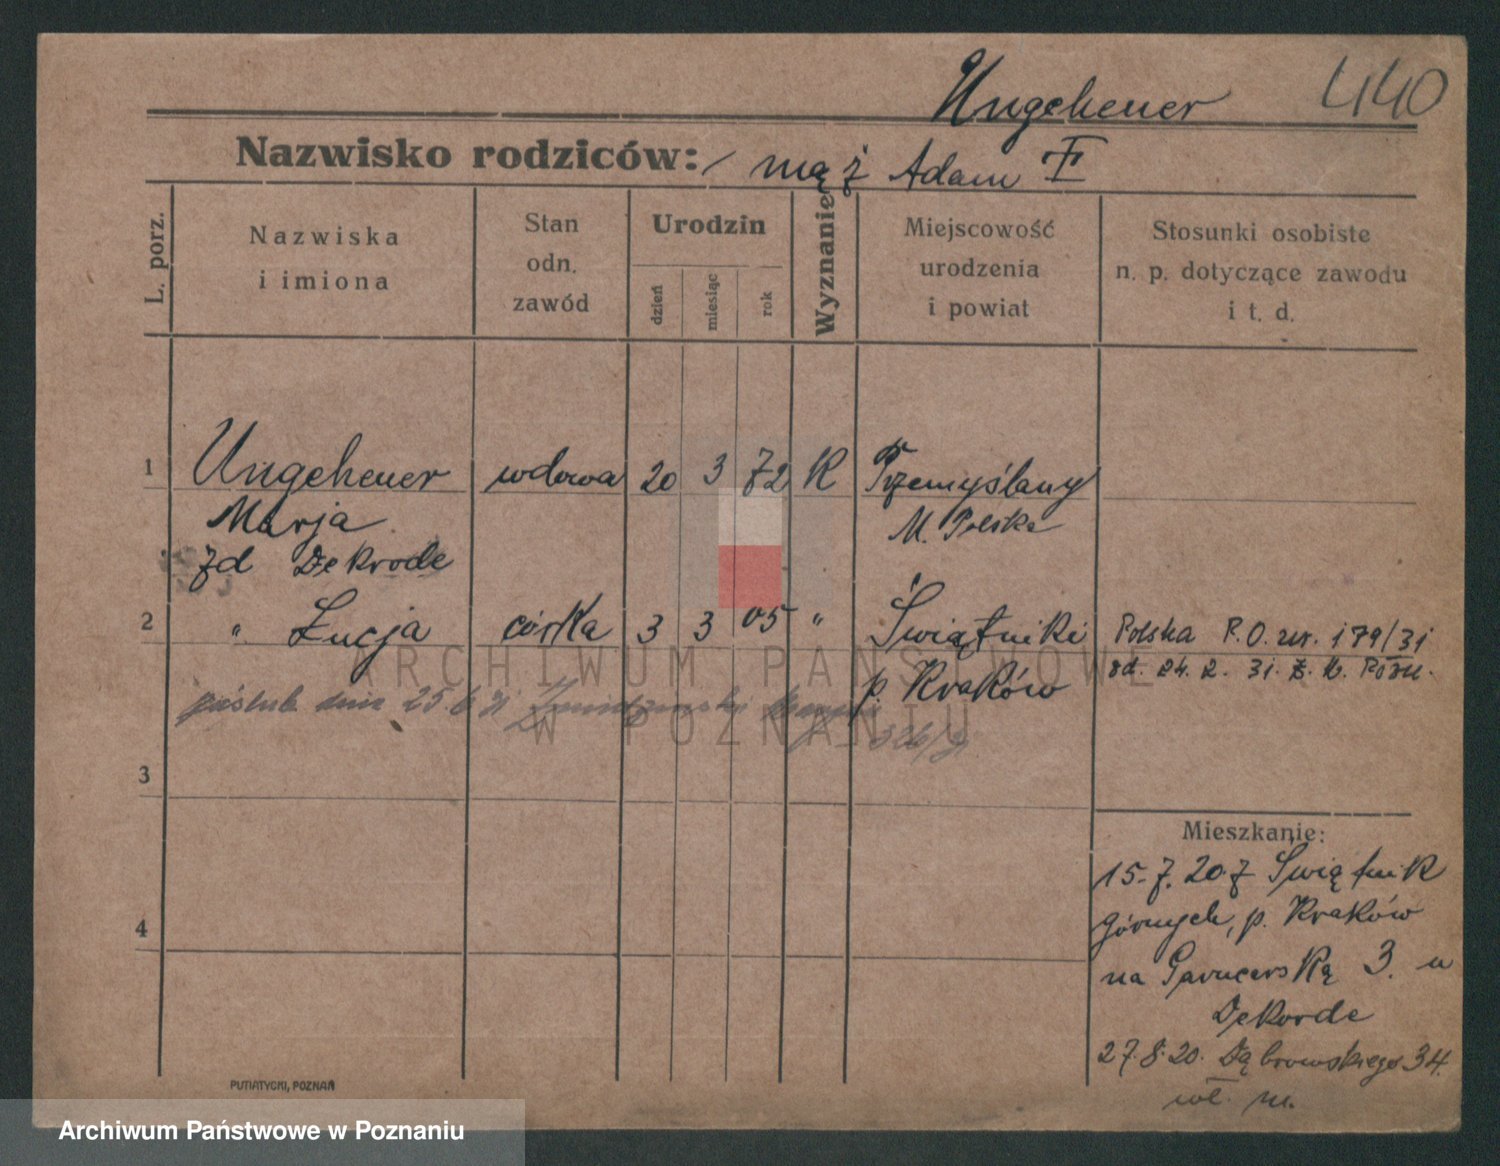 Ungeheuer 440
Nazwisko rodziców: mąż Adam
L. porz.
Nazwiska
i imiona
Stan
odn.
zawód
Urodzin
dzień
miesiąc
rok
Wyznanie
Miejscowość
urodzenia
i powiat
Stosunki osobiste
n. p. dotyczące zawodu
i t. d.
1 Ungeheuer wdowa 20 3 72 K Przemyślany
Marja M. Polska
zd Dekrode
2 " Łucja córka 3 3 05 " Świątniki Polska P.O. 179/31
p. Kraków od. 24. 2. 31. Pozn.
ślub dnia 25.6
326/31
3
4
Mieszkanie:
15.7.20 z Świątnik
górnych, p. Kraków
na Garncarską 3. u
Dekorde
27.8.20. Dąbrowskiego 34.
wł. m.
PUTIATYCKI, POZNAŃ
ARCHIWUM PAŃSTWOWE
W POZNANIU
Archiwum Państwowe w Poznaniu